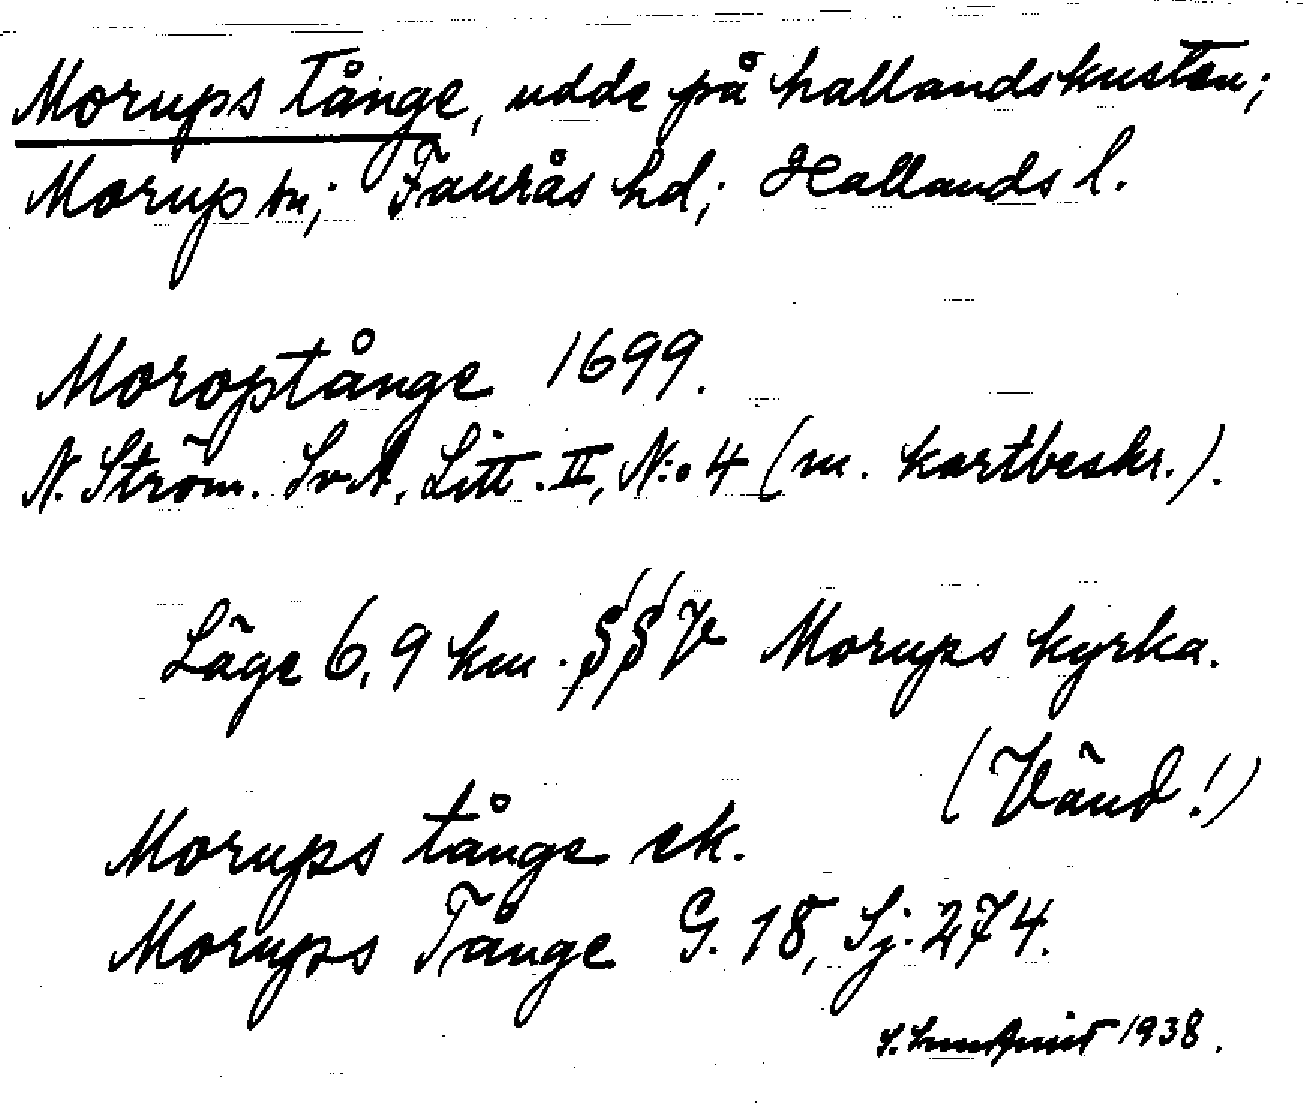 Morups Tånge, udde på hallandskusten;
Morup sn; Faurås hd; Hallands l.
Moroptånge 1699.
N. Ström. SvA, Litt. II, N:o 4 (m. kartbeskr.).
Läge 6,9 km. SSV Morups kyrka.
(Vänd!)
Morups tånge ek.
Morups Tånge G. 18, Sj. 274.
1938.